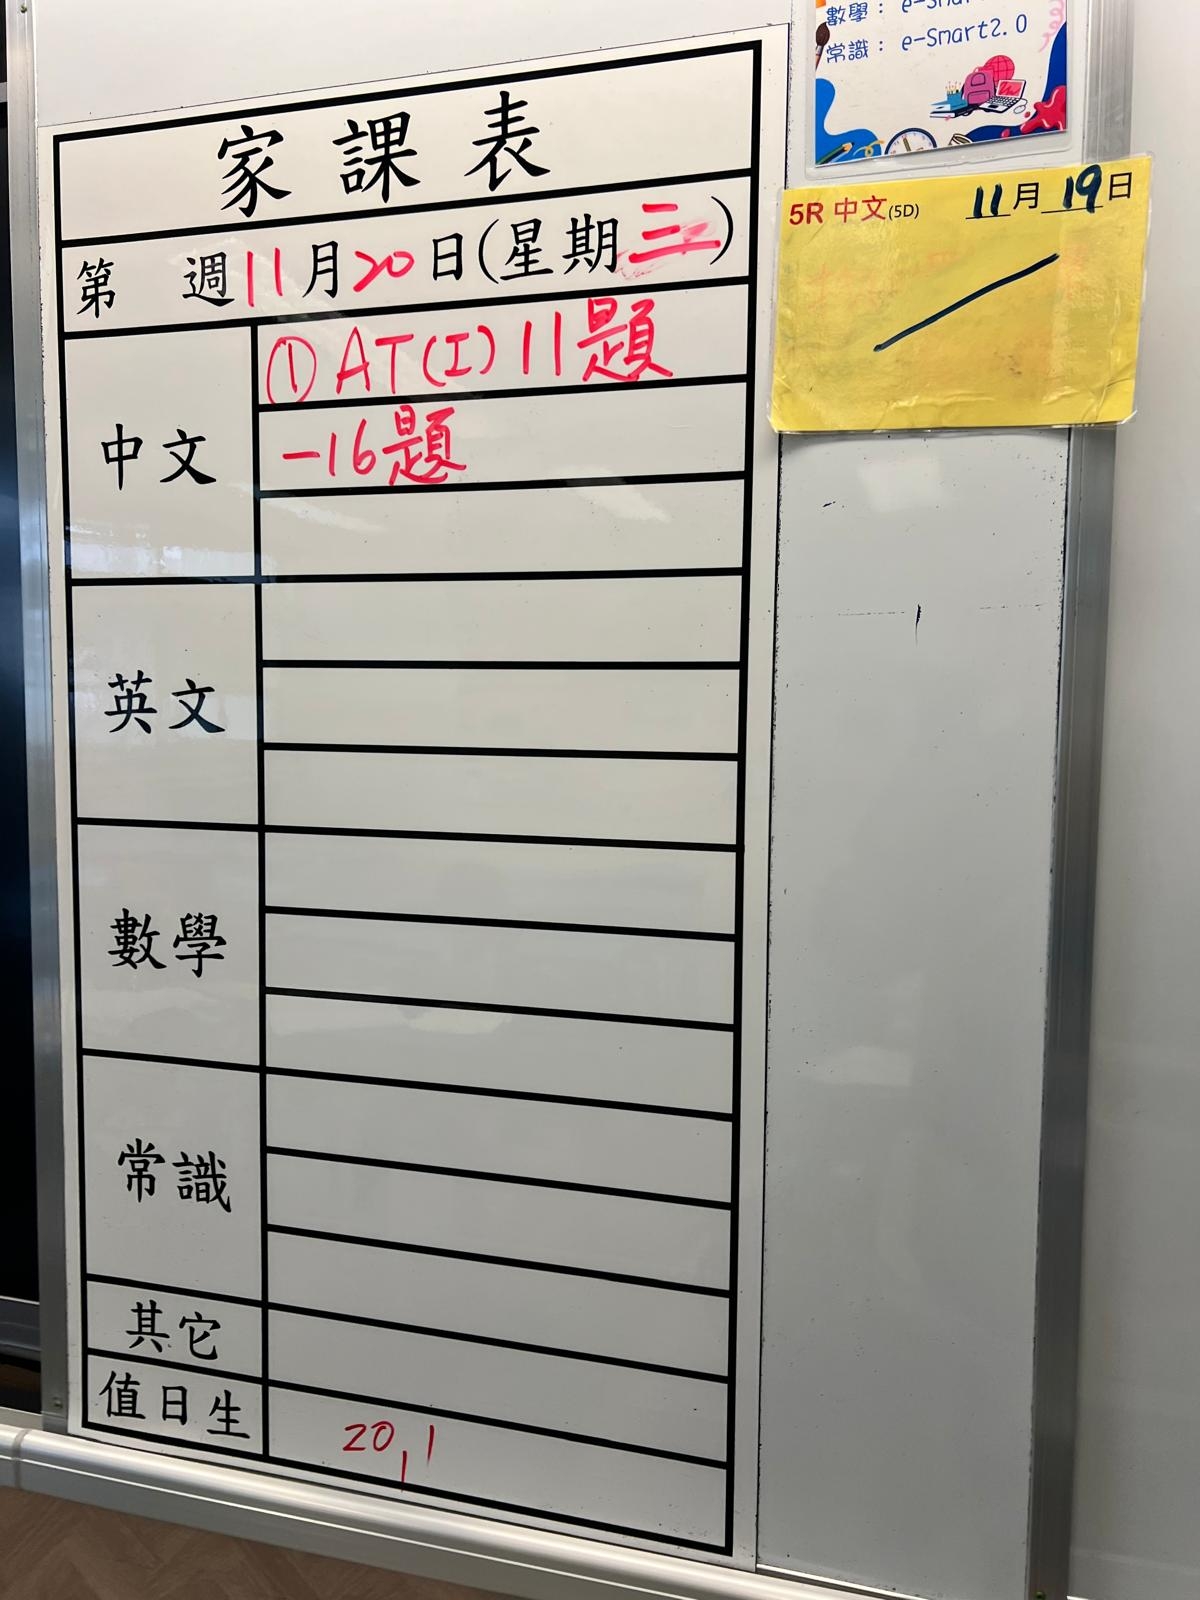 家課表
第 週11月20日(星期三)
中文
①AT(I)11題
-16題
英文
數學
常識
其它
值日生
20,1
數學： e-Smar
常識： e-Smart2.0
5R 中文(5D) 11月19日